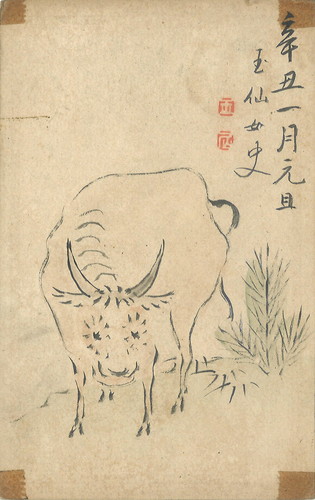 辛丑一月元旦
玉仙女史
玉
仙